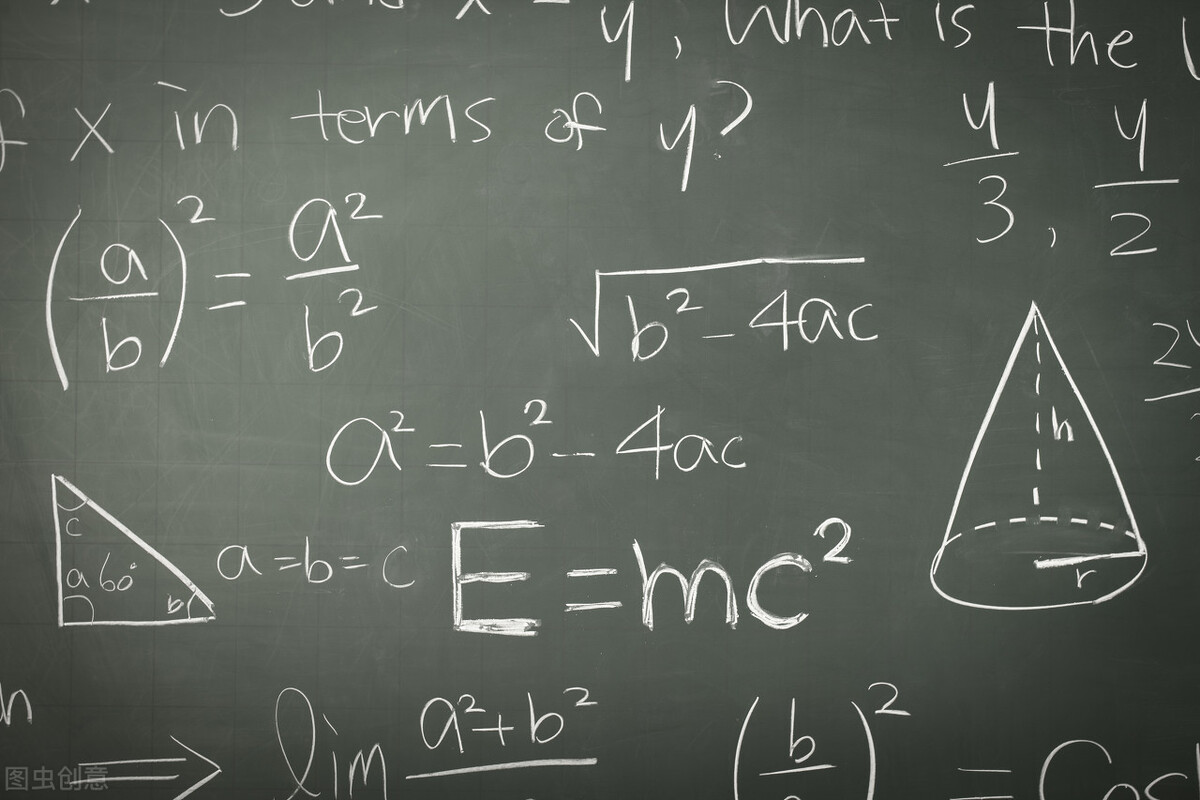 y, What is the
x in terms of y?
y/3, y/2
(a/b)² = a²/b²
√b² - 4ac
a² = b² - 4ac
h
c
a 60°
b
a = b = c
E = mc²
r
⇒ lim a² + b²
(b/)² =
图虫创意